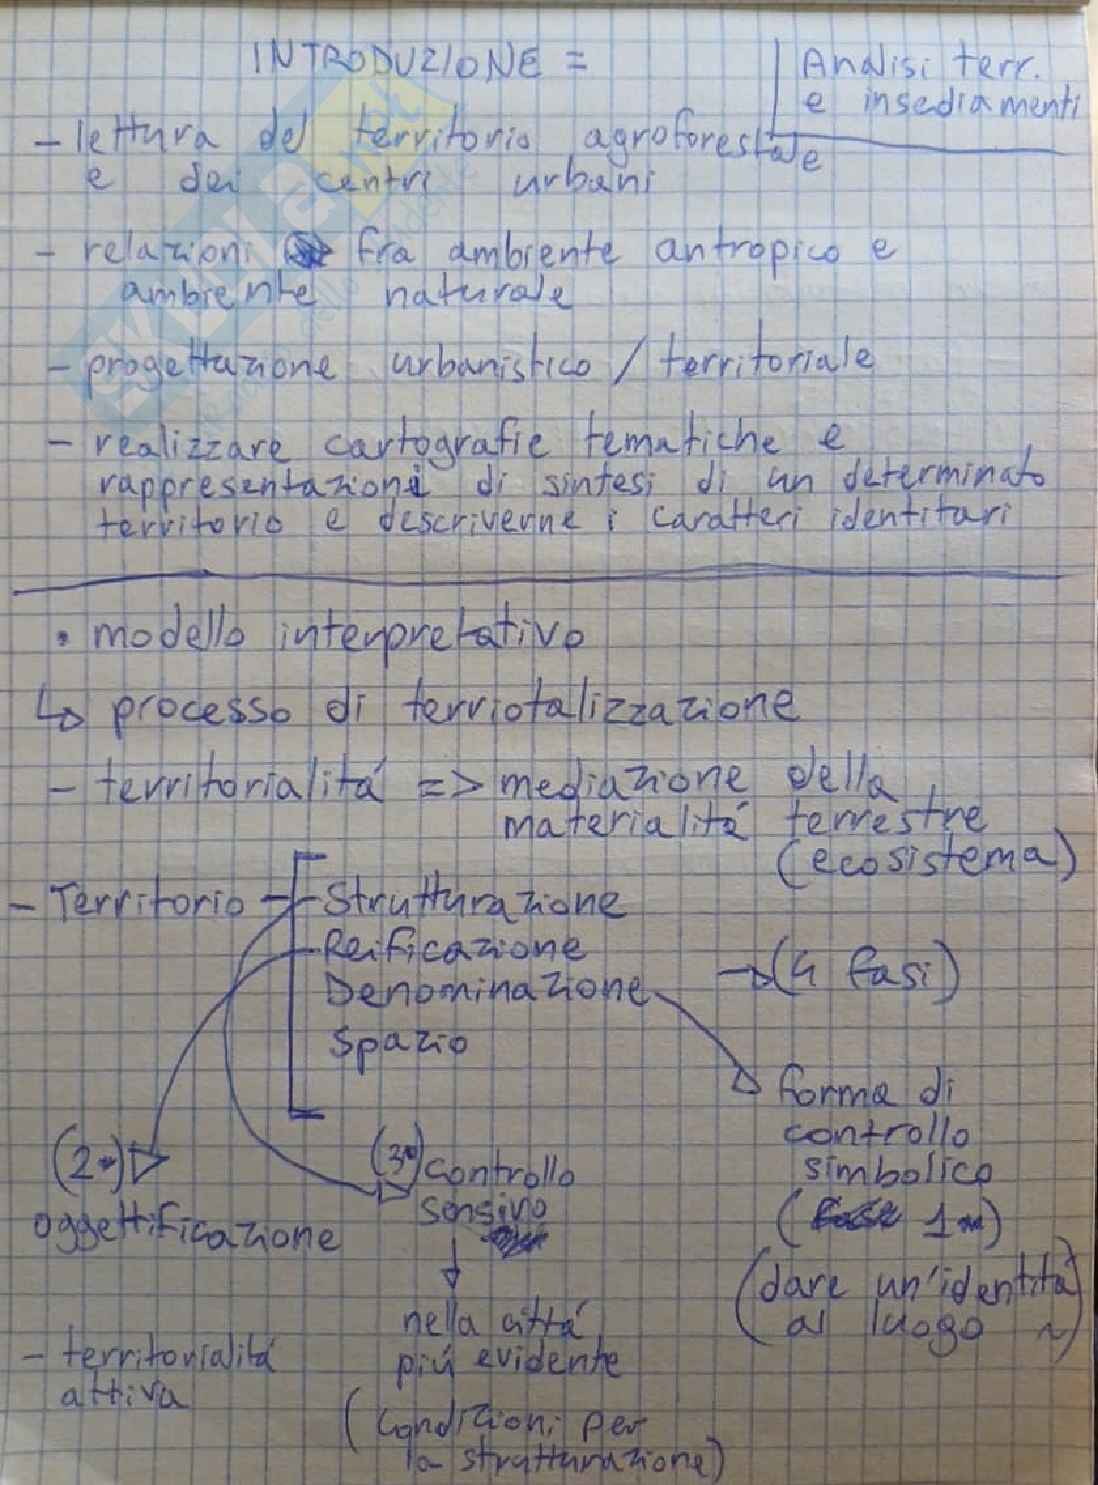 INTRODUZIONE =
Analisi terr.
e insediamenti
- lettura del territorio agroforestale
e dei centri urbani
- relazioni fra ambiente antropico e
ambiente naturale
- progettazione urbanistico / territoriale
- realizzare cartografie tematiche e
rappresentazioni di sintesi di un determinato
territorio e descriverne i caratteri identitari
• modello interpretativo
↳ processo di terriotalizzazione
- territorialitá => mediazione della
materialitá terrestre
(ecosistema)
- Territorio - Strutturazione
Reificazione
Denominazione → (4 fasi)
Spazio
forma di
controllo
simbolico
(fase 1)
(dare un'identitá
al luogo ~)
(2)
oggettificazione
(3) controllo
sensivo
nella cittá
piú evidente
(condizioni per
la strutturazione)
- territorialitá
attiva